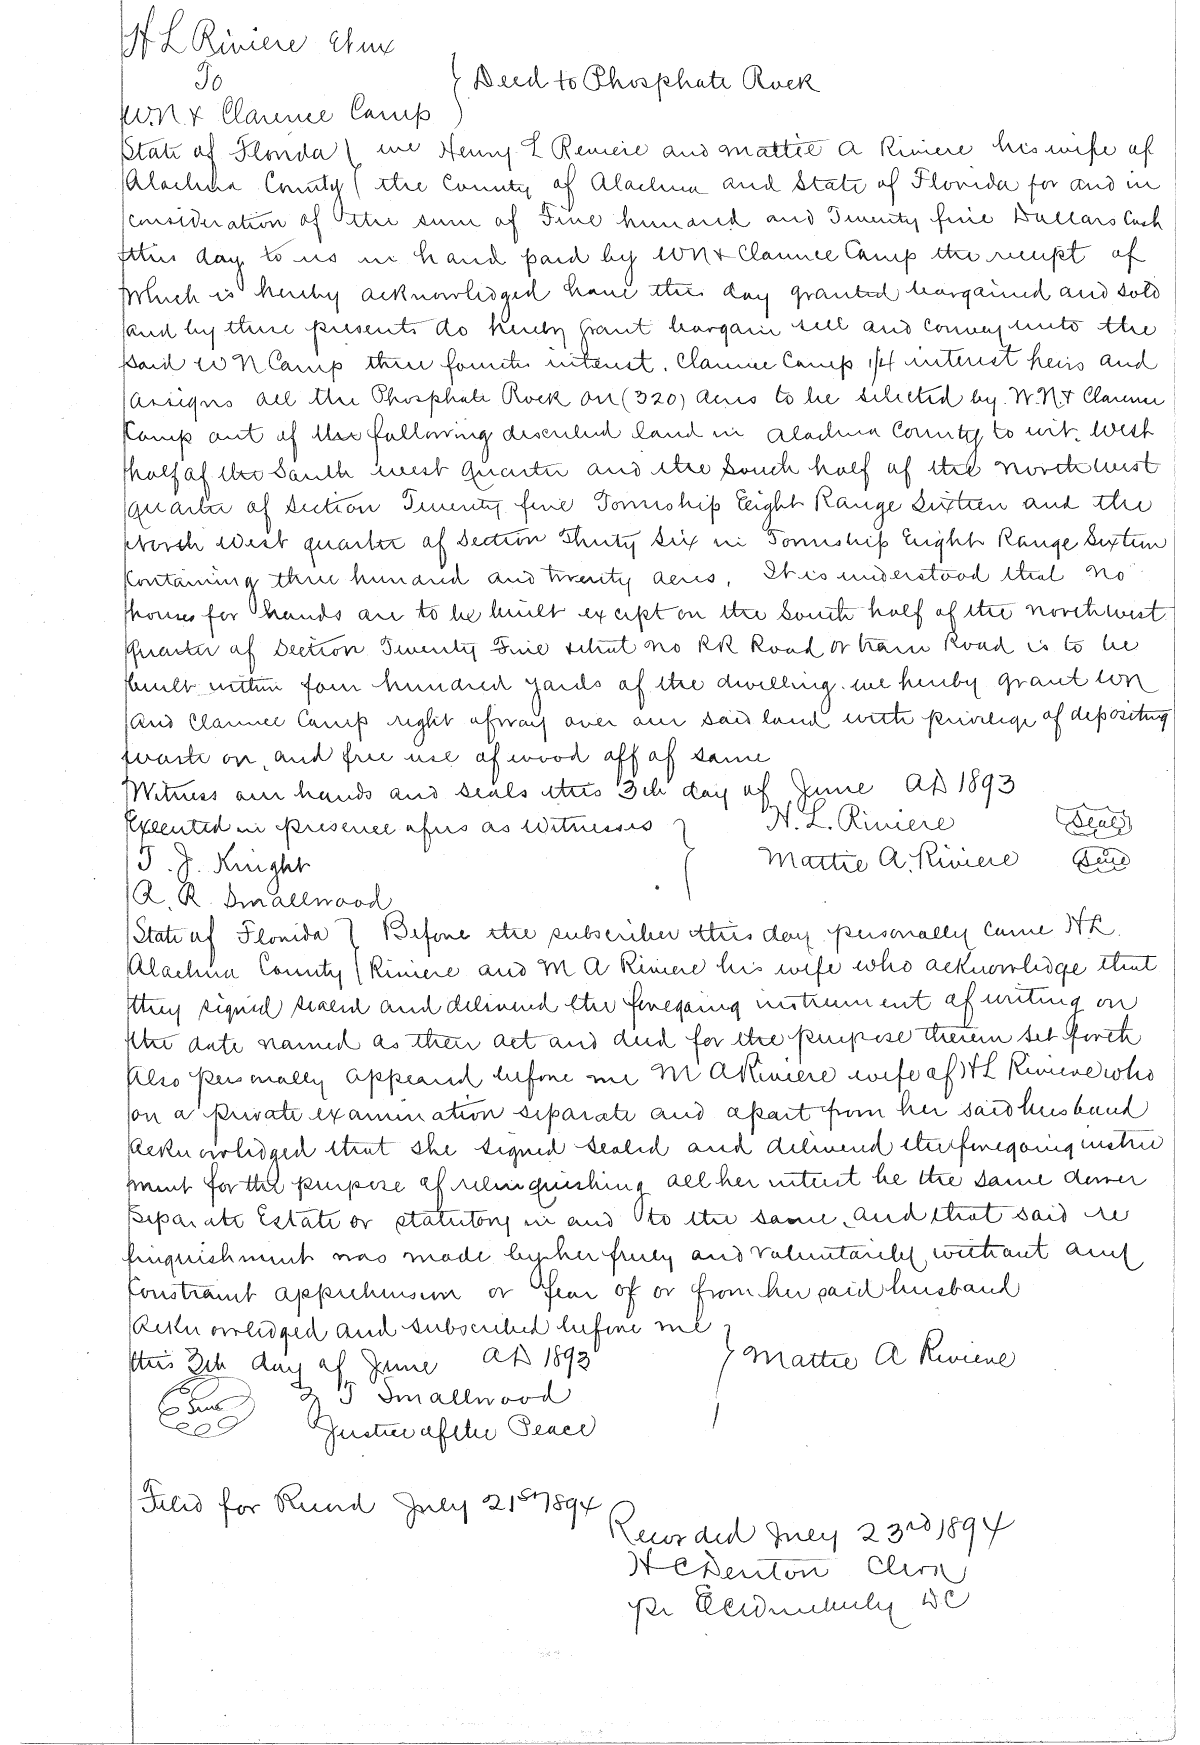 H L Riviere Et ux
To } Deed to Phosphate Rock
W.N & Clarence Camp
State of Florida { we Henry L Reviere and Mattie A Riviere his wife of
Alachua County { the County of Alachua and State of Florida for and in
consideration of the sum of Five hundred and Twenty five Dollars Cash
this day to us in hand paid by WN & Clarence Camp the receipt of
which is hereby acknowledged have this day granted bargained and sold
and by these presents do hereby grant bargain sell and convey unto the
said W N Camp three fourths interest. Clarence Camp 1/4 interest heirs and
assigns all the Phosphate Rock on (320) acres to be selected by W.N & Clarence
Camp out of the following described land in Alachua County to wit. West
half of the South west quarter and the South half of the North west
quarter of Section Twenty five Township Eight Range Sixteen and the
North West quarter of Section Thirty Six in Township Eight Range Sixteen
Containing three hundred and twenty acres. It is understood that no
houses for hands are to be built except on the South half of the north west
Quarter of Section Twenty Five & that no RR Road or tram Road is to be
built within four hundred yards of the dwelling. we hereby grant WN
and Clarence Camp right of way over our said land with privilege of depositing
waste on, and free use of wood off of same
Witness our hands and seals this 3th day of June AD 1893
Executed in presence of us as Witnesses } H. L. Riviere (Seal)
T. J. Knight Mattie A. Riviere (Seal)
A. R. Smallwood
State of Florida } Before the subscriber this day personally came H L.
Alachua County { Riviere and M A Riviere his wife who acknowledge that
they signed sealed and delivered the foregoing instrument of writing on
the date named as their act and deed for the purpose therein set forth
Also personally appeared before me M A Riviere wife of H L Riviere who
on a private examination separate and apart from her said husband
Acknowledged that she signed sealed and delivered the foregoing instru
ment for the purpose of relinquishing all her interest be the same dower
Separate Estate or statutory in and to the same, and that said re
linquishment was made by her freely and voluntarily without any
Constraint apprehension or fear of or from her said husband
Acknowledged and subscribed before me
this 3th day of June AD 1893 } Mattie A Riviere
(Seal) T Smallwood
Justice of the Peace
Filed for Record July 21st 1894
Recorded July 23rd 1894
H C Denton Clerk
pr DC